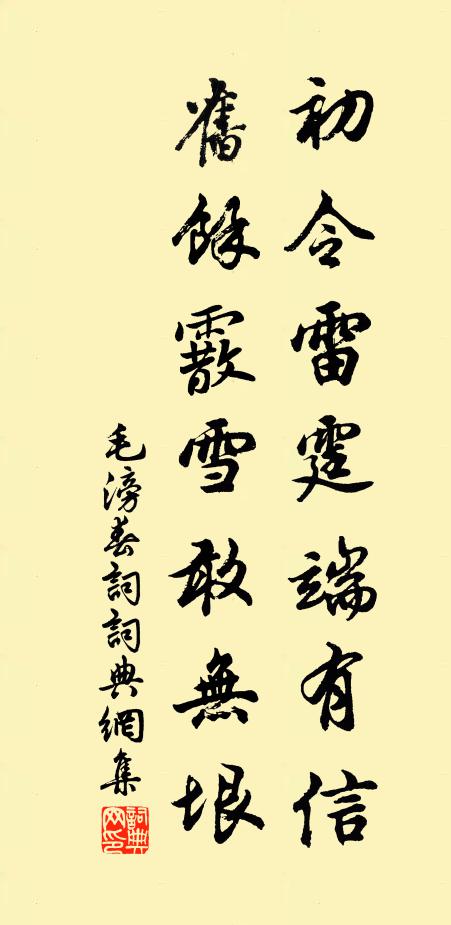 初令雷霆端有信
舊餘霰雪敢無垠
毛滂春詞詞典網集
詞典網印